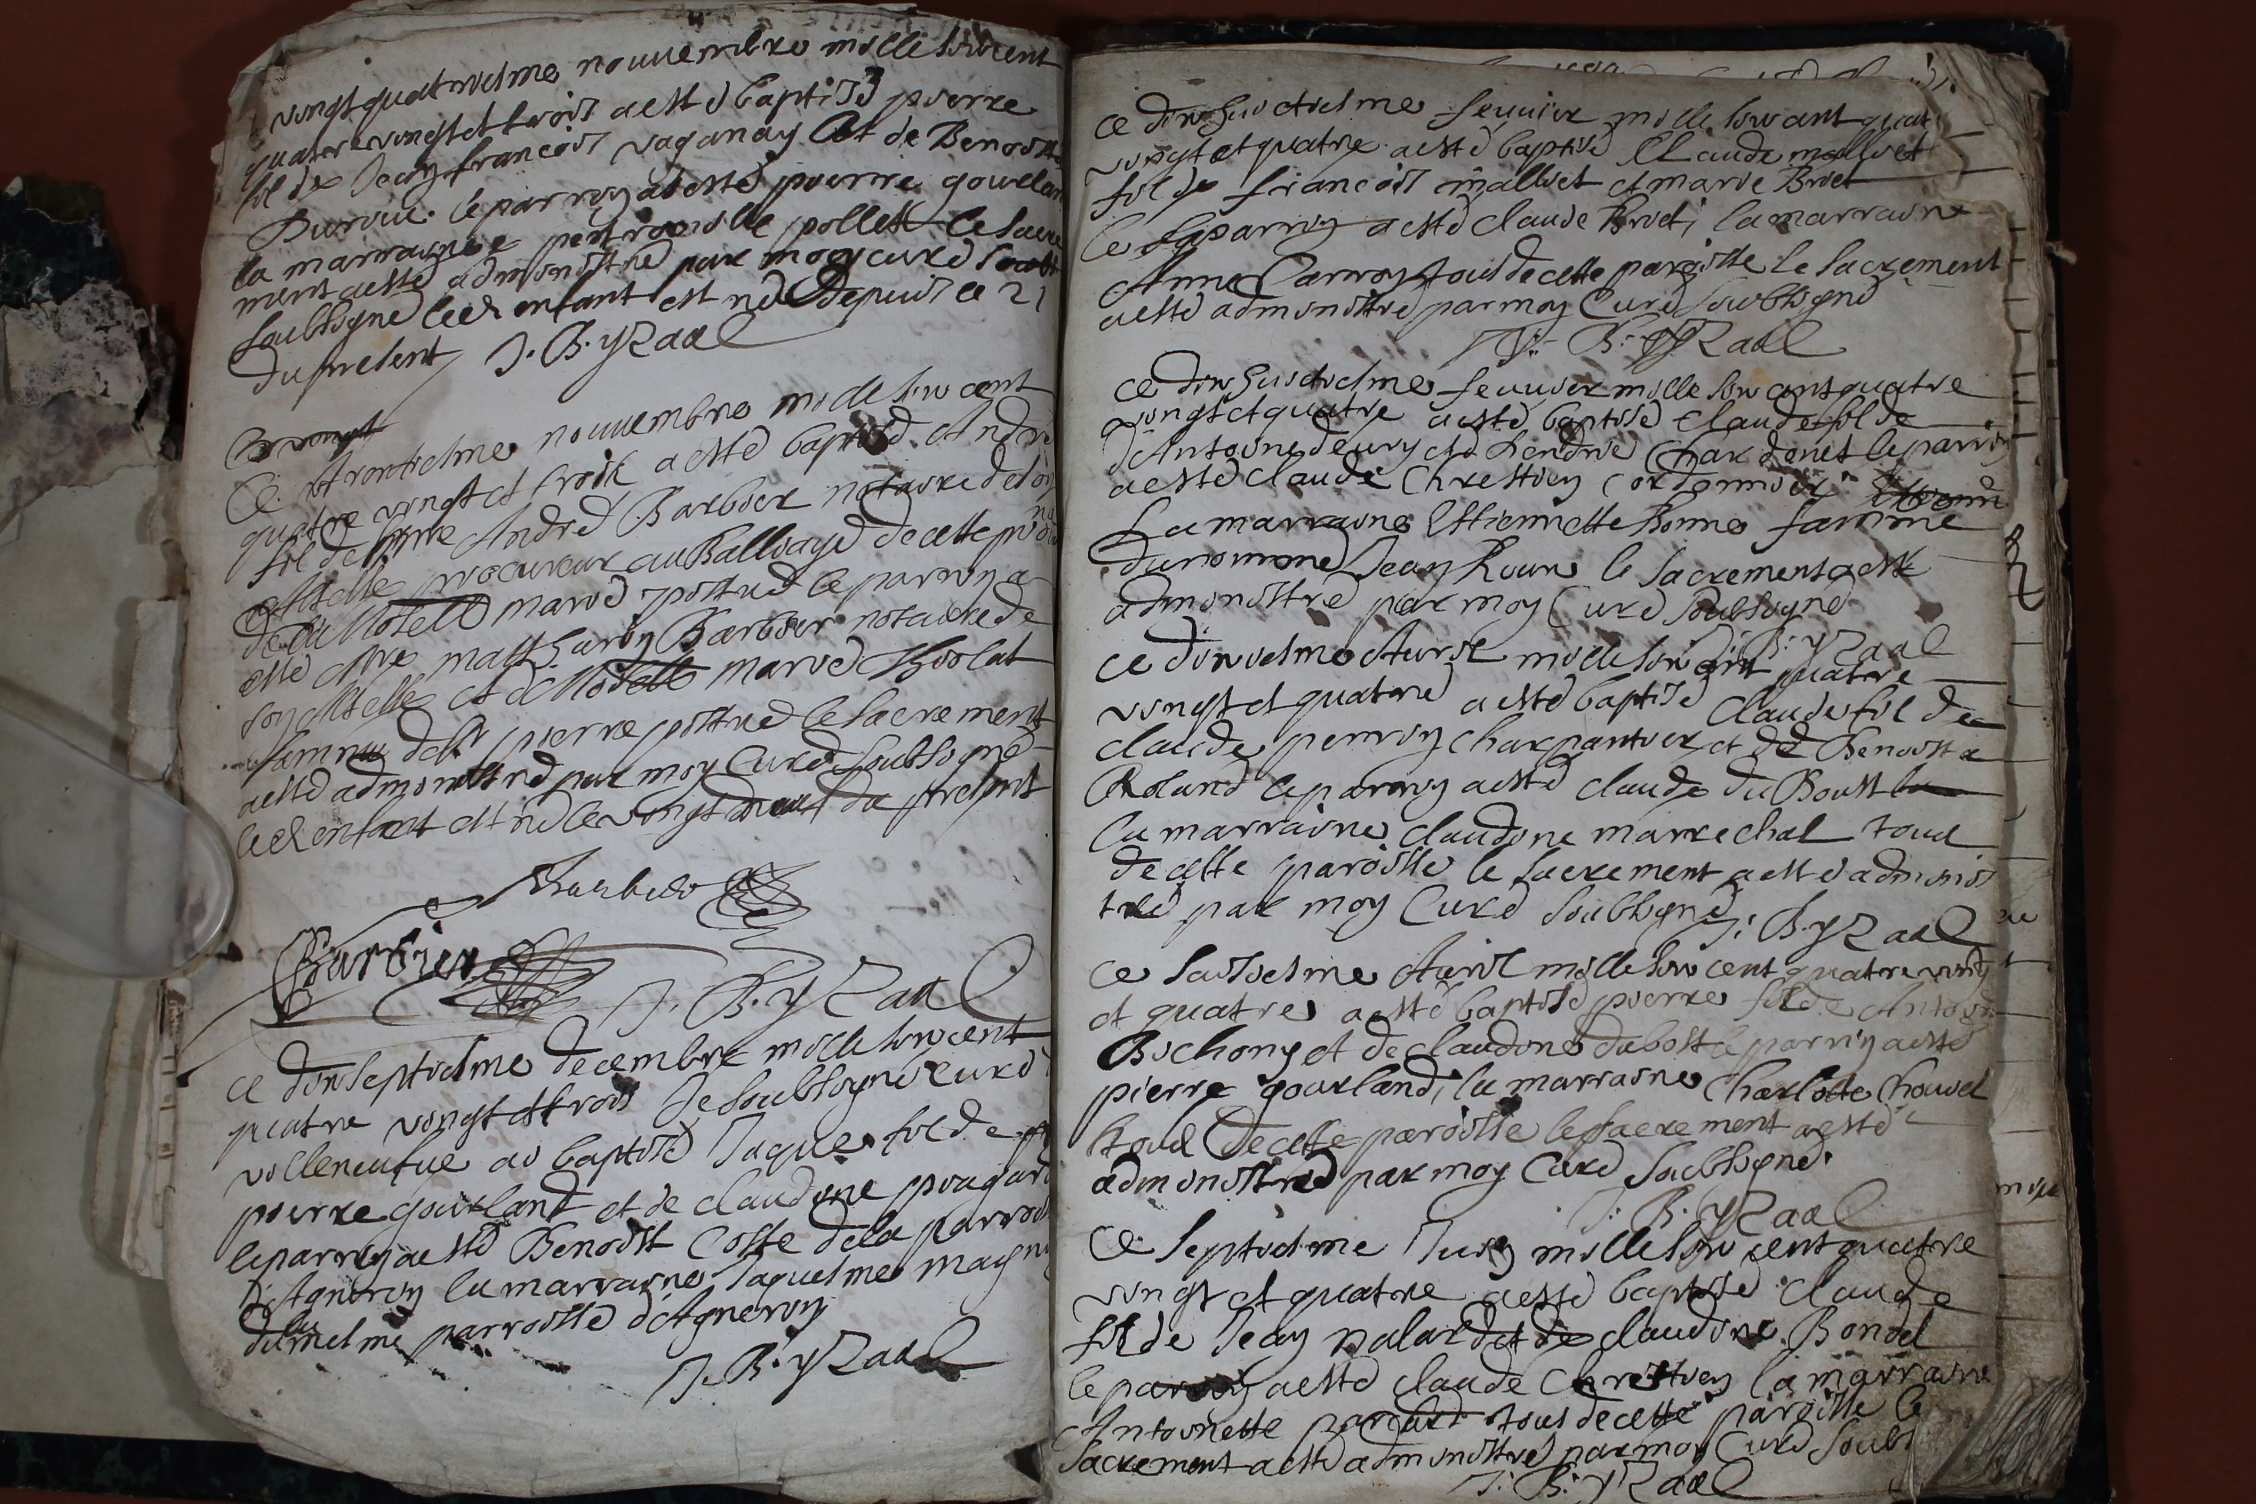 vingt quatriesme nouuembre mille six cent
quatre vingt et trois a esté baptisé pierre
fil de Jean francois vaganay et de Benoiste
Buroui le parrin a esté pierre gourlan
la marraine petronille pollett le sacre
ment a esté administré par moy curé soub
soubsigne led enfant est né depuis ce 21
du present J. B. yzaac
Ce vingt
Ce trentiesme nouuembre mille six cent
quatre vingt et trois a esté baptisé André
fil de Mre André Barbier notaire
procureur au Balliage de cette
marie le parrin a
esté Mre Mathurin Barbier notaire de
et marie Thiolat
famme de pierre le sacrement
a esté administré par moy Curé soubsigné
led enfant est né le vingt du present
Barbier
J. B. yzaac
ce dixseptiesme decembre mille six cent
quatre vingt et trois Je soubsigné curé
villeneufue ay baptisé Jaques fil de
pierre gourland et de claudine
le parrin a esté Benoist Coste de la parrois
d'Agneren la marraine Jaquesme magn
du mesme parroisse d'Agneren
J. B. yzaac
ce dixhuictiesme feuuier mille six cent quat
vingt et quatre a esté baptisé Claude malliet
fil de francois malliet et marie Briet
le parrin a esté claude Briet, la marraine
Anne Carron tous de cette paroisse le sacrement
a esté administré par moy Curé soubsigné
J. B. yzaac
ce dixhuictiesme feuuier mille six cent quatre
vingt et quatre a esté baptisé claude fil de
d'Antoine deury et d'Andrie Chardenet le parrin
a esté claude Chrestien cordonnier
La marraine Estiennette Bonne famme
du nommé Jean le sacrement a esté
administré par moy Curé soubsigné
J. B. yzaac
ce dixiesme Auril mille six cent quatre
vingt et quatre a esté baptisé claude fil de
claude perrin charpantier et de Benoiste
Roland le parrin a esté claude du Boust
la marraine claudine marrechal tous
de cette paroisse le sacrement a esté adminis
tré par moy Curé soubsigné
J. B. yzaac
ce saisiesme Auril mille six cent quatre ving
et quatre a esté baptisé pierre fil de Antoi
Bichon et de claudine dubost le parrin a esté
pierre gourland, la marraine Charlotte Chouvel
tous de cette paroisse le sacrement a esté
administré par moy Curé soubsigné
J. B. yzaac
ce septiesme Juin mille six cent quatre
vingt et quatre a esté baptisé claude
fil de Jean nalard et de claudine Bondel
le parrin a esté claude Chrestien la marraine
Antoinette tous de cette paroisse le
sacrement a esté administré par moy Curé soubs
J. B. yzaac